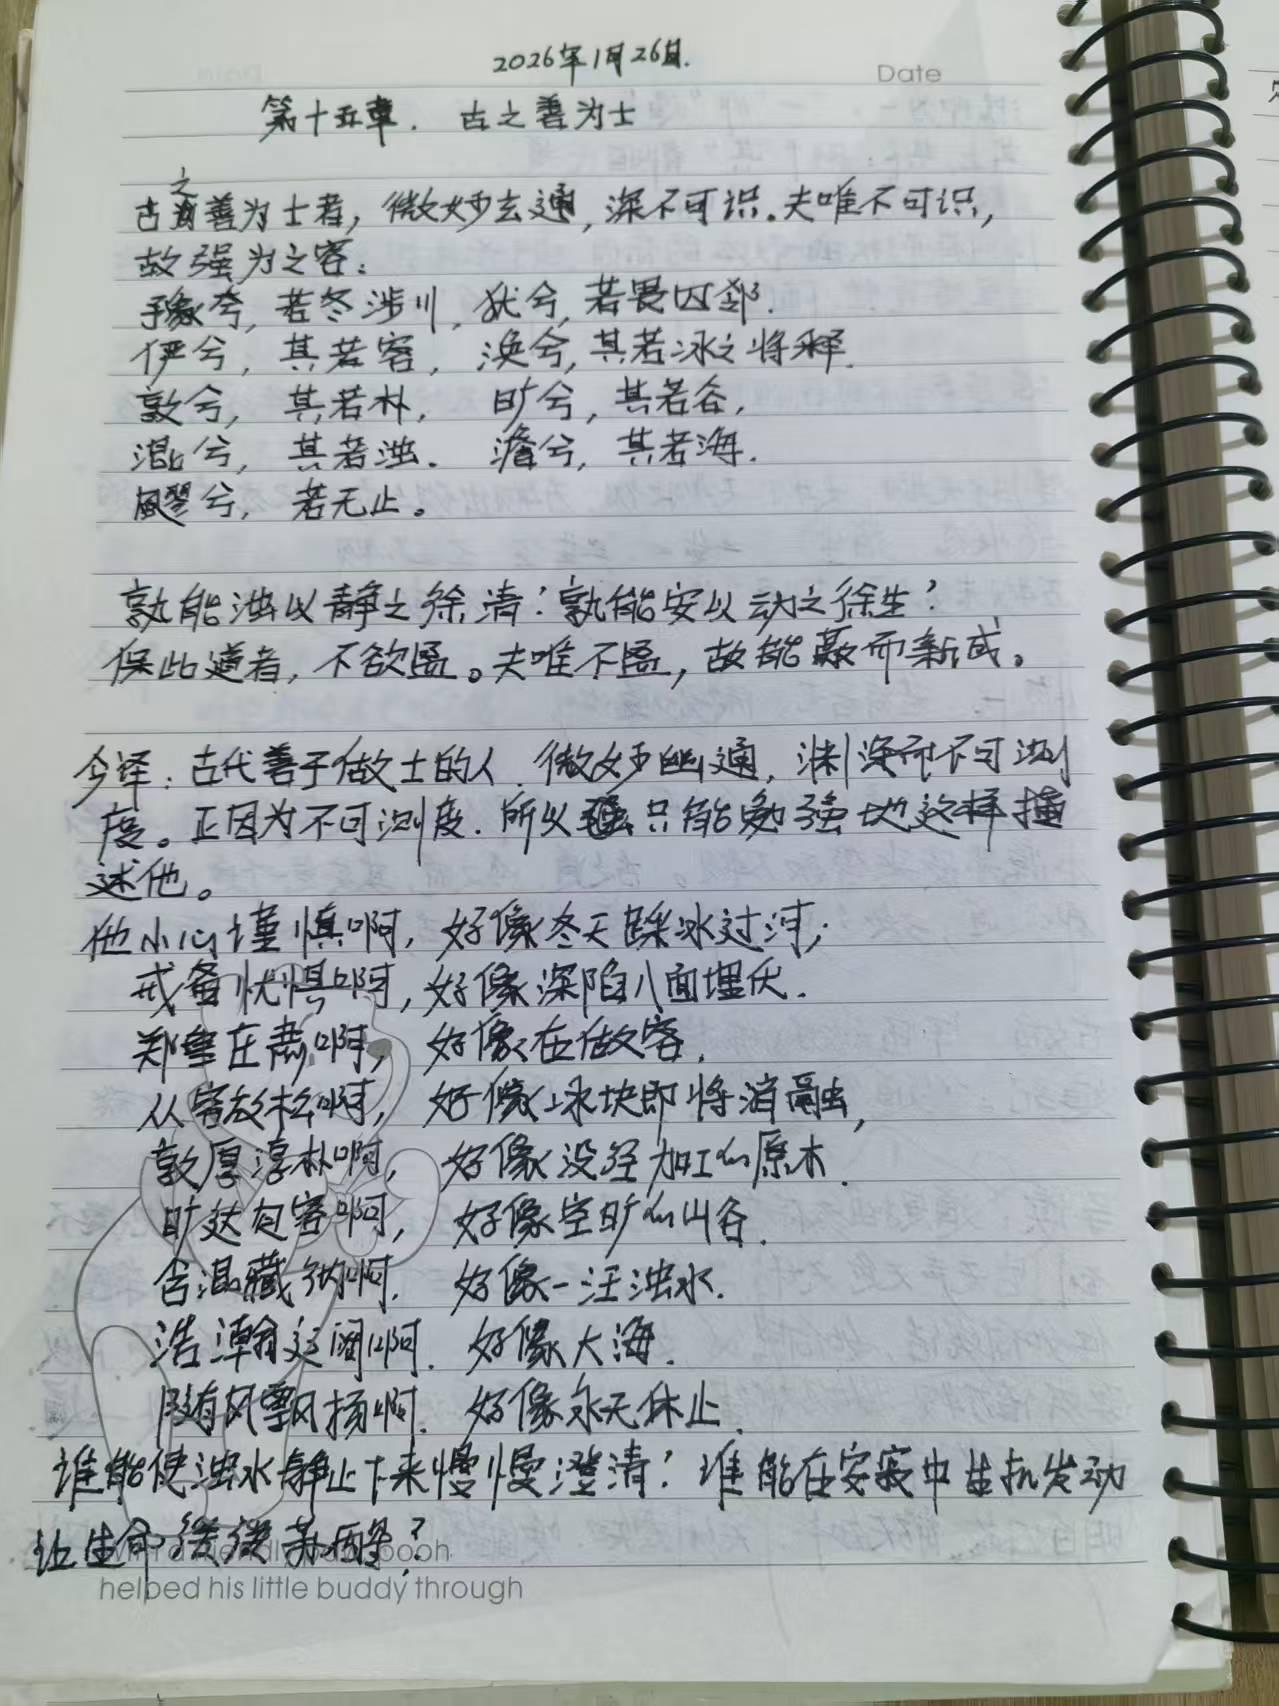 2026年1月26日.
Date
第十五章. 古之善为士
古之善为士者, 微妙玄通, 深不可识. 夫唯不可识,
故强为之容:
豫兮, 若冬涉川, 犹兮, 若畏四邻.
俨兮, 其若客, 涣兮, 其若冰之将释.
敦兮, 其若朴, 旷兮, 其若谷,
混兮, 其若浊. 澹兮, 其若海.
飂兮, 若无止。
孰能浊以静之徐清? 孰能安以动之徐生?
保此道者, 不欲盈。夫唯不盈, 故能蔽而新成。
今译: 古代善于做士的人. 微妙幽通, 渊深而不可测
度。正因为不可测度. 所以只能勉强地这样描
述他。
他小心谨慎啊, 好像冬天踩冰过河;
戒备忧惧啊, 好像深陷八面埋伏.
郑重庄肃啊, 好像在做客,
从容放松啊, 好像冰块即将消融,
敦厚淳朴啊, 好像没经加工的原木.
旷达包容啊, 好像空旷的山谷.
含混藏纳啊. 好像一汪浊水.
浩瀚辽阔啊. 好像大海.
随有风飘扬啊. 好像永无休止.
谁能使浊水静止下来慢慢澄清? 谁能在安寂中生机发动
让生命缓缓苏醒?
pooh
helped his little buddy through